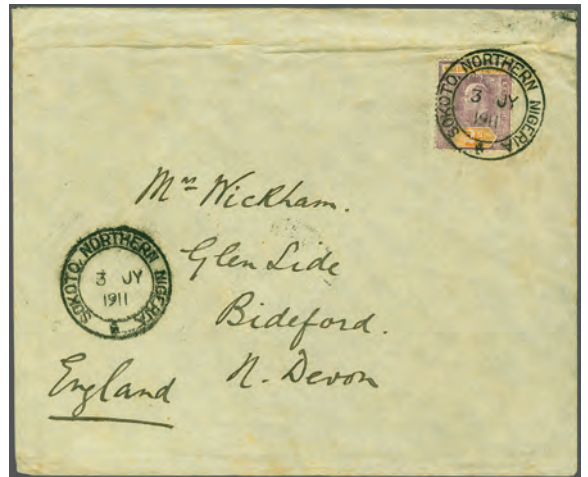 SOKOTO, NORTHERN NIGERIA
3 JY
1911
Mrs Wickham.
Glen Side
Bideford.
N. Devon
England
SOKOTO, NORTHERN NIGERIA
3 JY
1911